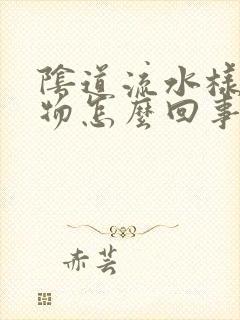 陰道流水樣
物怎麼回事
赤芸